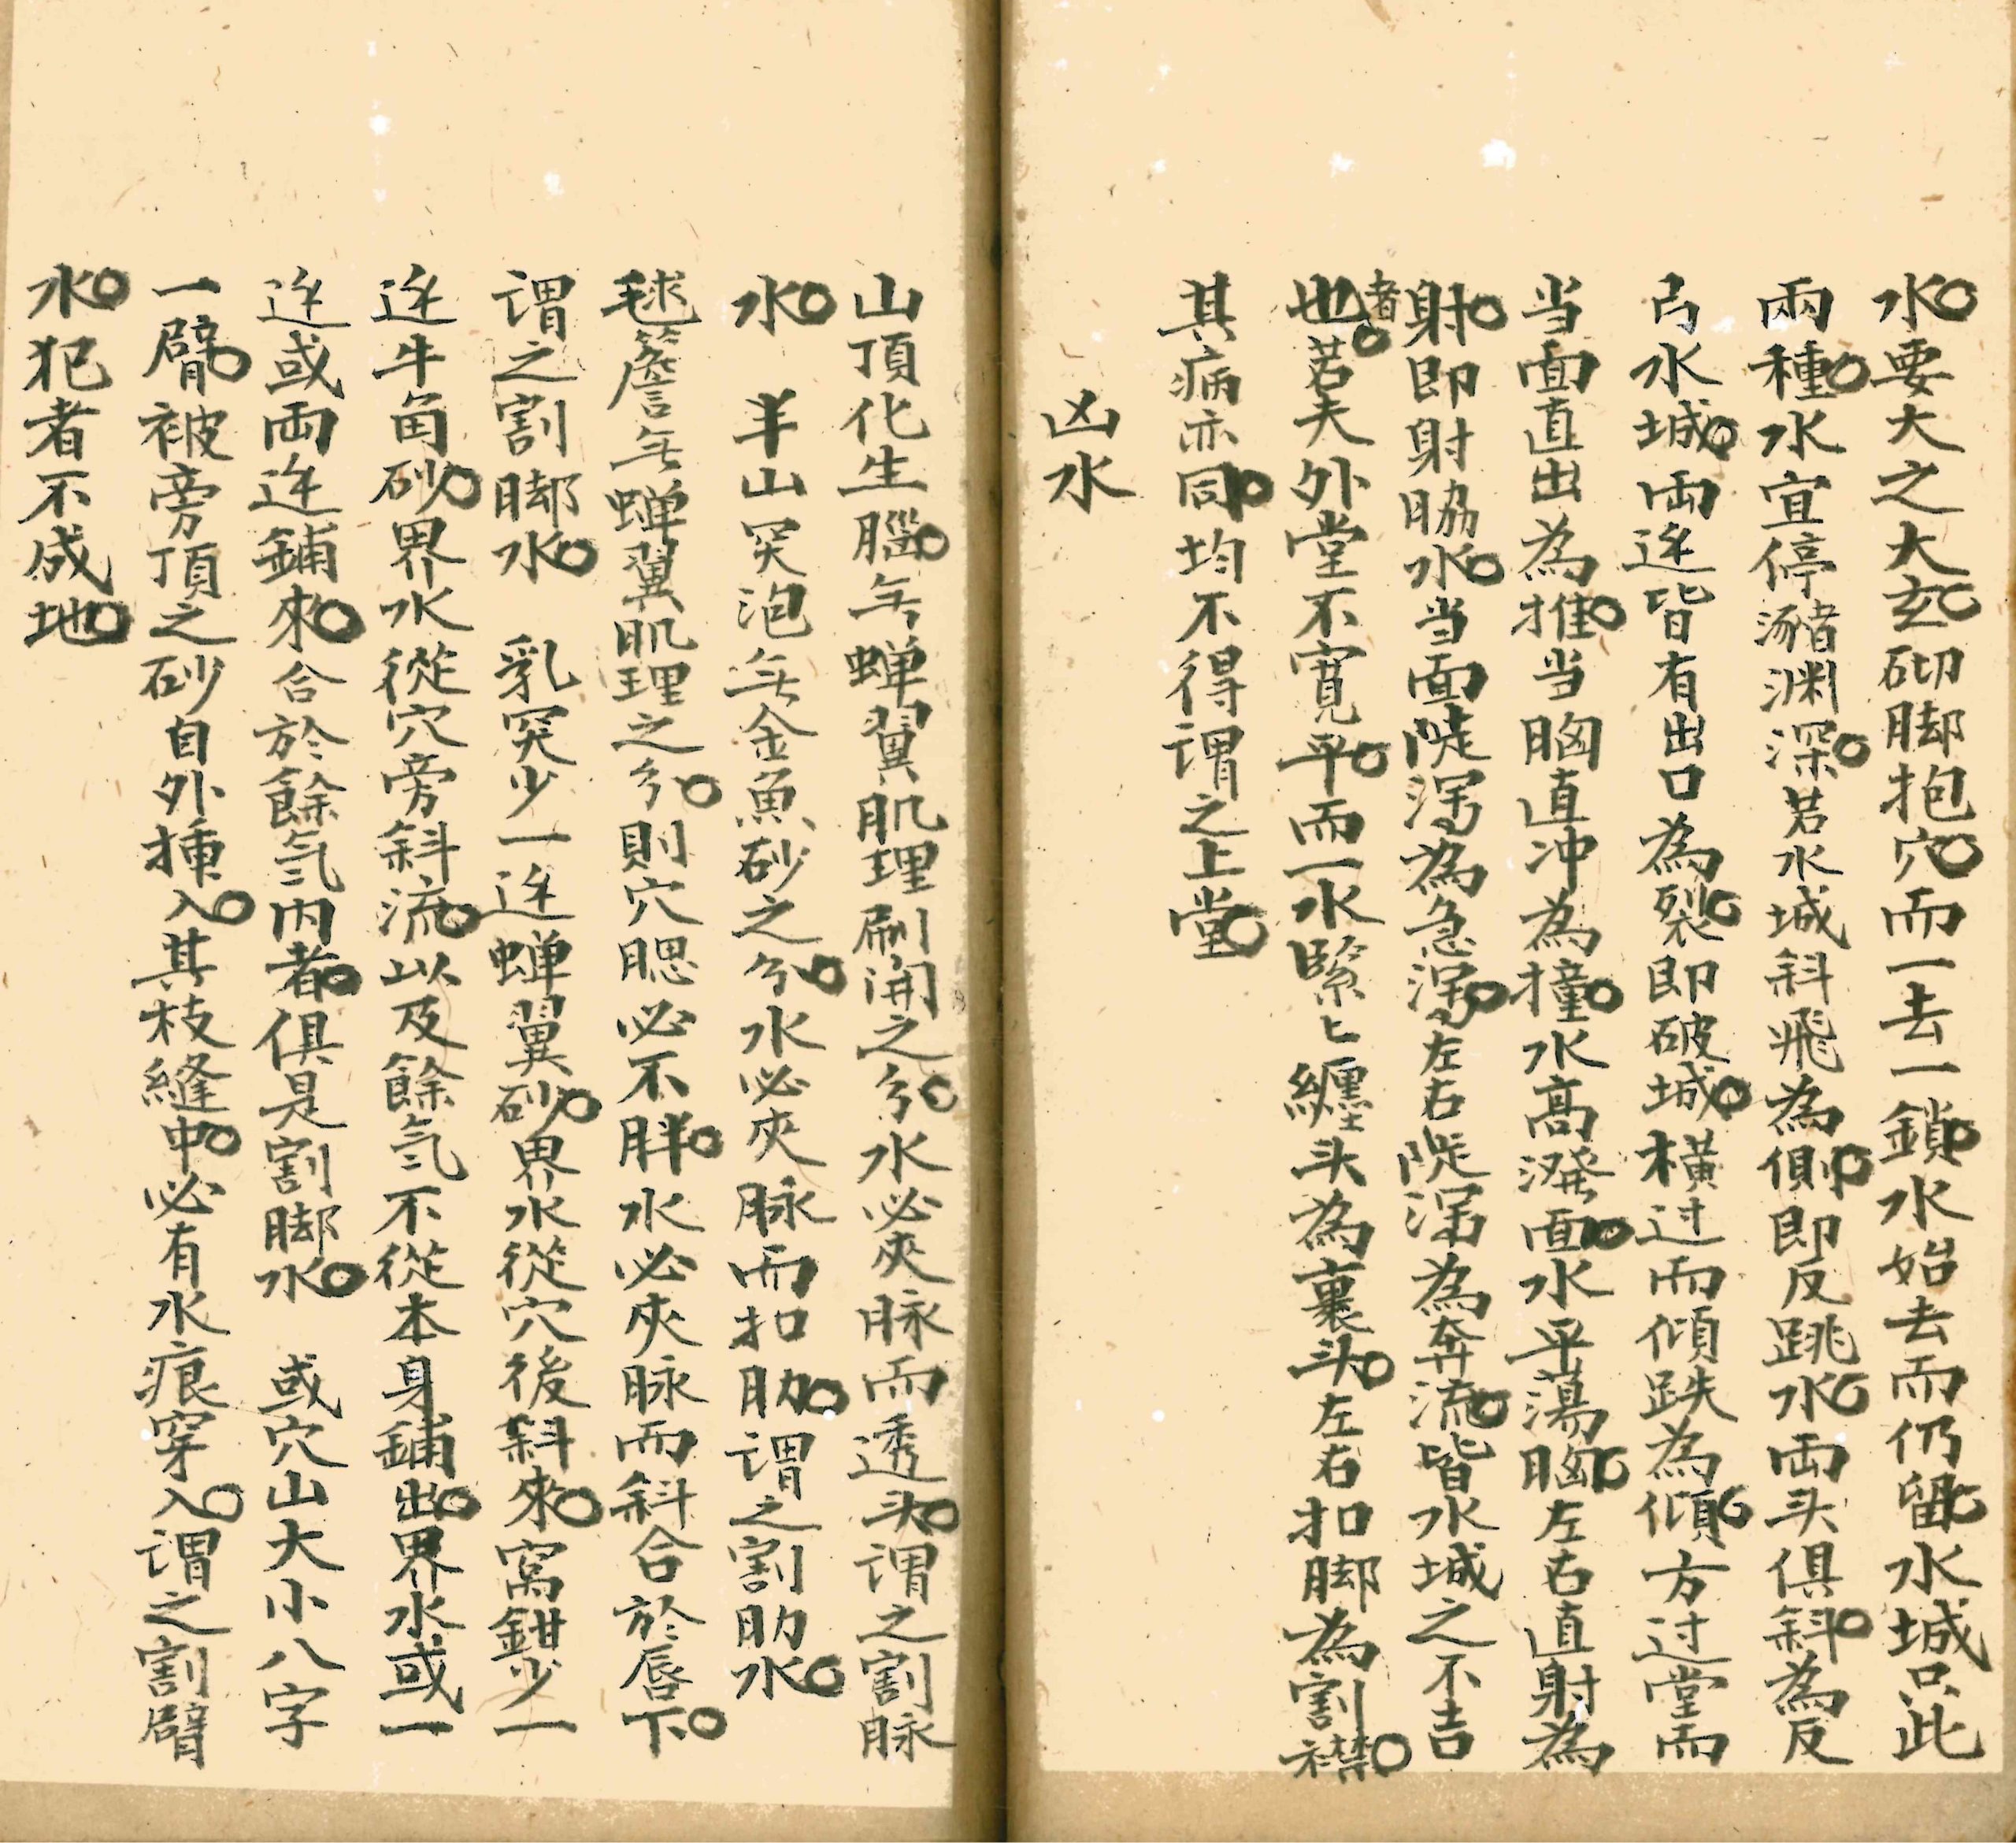 水要大之大玄砌脚抱穴而一去一鎖水始去而仍留水城只此
兩種水宜停瀦渊深若水城斜飛為側即反跳水両头俱斜為反
弓水城両边皆有出口為裂即破城横过而傾跌為傾方过堂而
当面直出為推当胸直冲為撞水髙潑面水平蕩胸左右直射為
射即射脇水当面陡瀉為急瀉左右陡瀉為奔流皆水城之不吉
者
也若夫外堂不寛平而一水緊〻纏头為裹头左右扣脚為割襟
其病亦同均不得謂之上堂
凶水
山頂化生腦无蝉翼肌理刷開之分水必夾脉而透头謂之割脉
水　羊山突泡无金魚砂之分水必夾脉而扣肋謂之割肋水
毬簷无蝉翼肌理之分則穴腮必不胖水必夾脉而斜合於唇下
謂之割脚水　乳突少一边蝉翼砂界水從穴後斜來窝鉗少一
边牛角砂界水從穴旁斜流以及餘氣不從本身鋪出界水或一
边或両边鋪來合於餘氣内者俱是割脚水　或穴山大小八字
一臂被旁頂之砂自外挿入其枝縫中必有水痕穿入謂之割臂
水犯者不成地